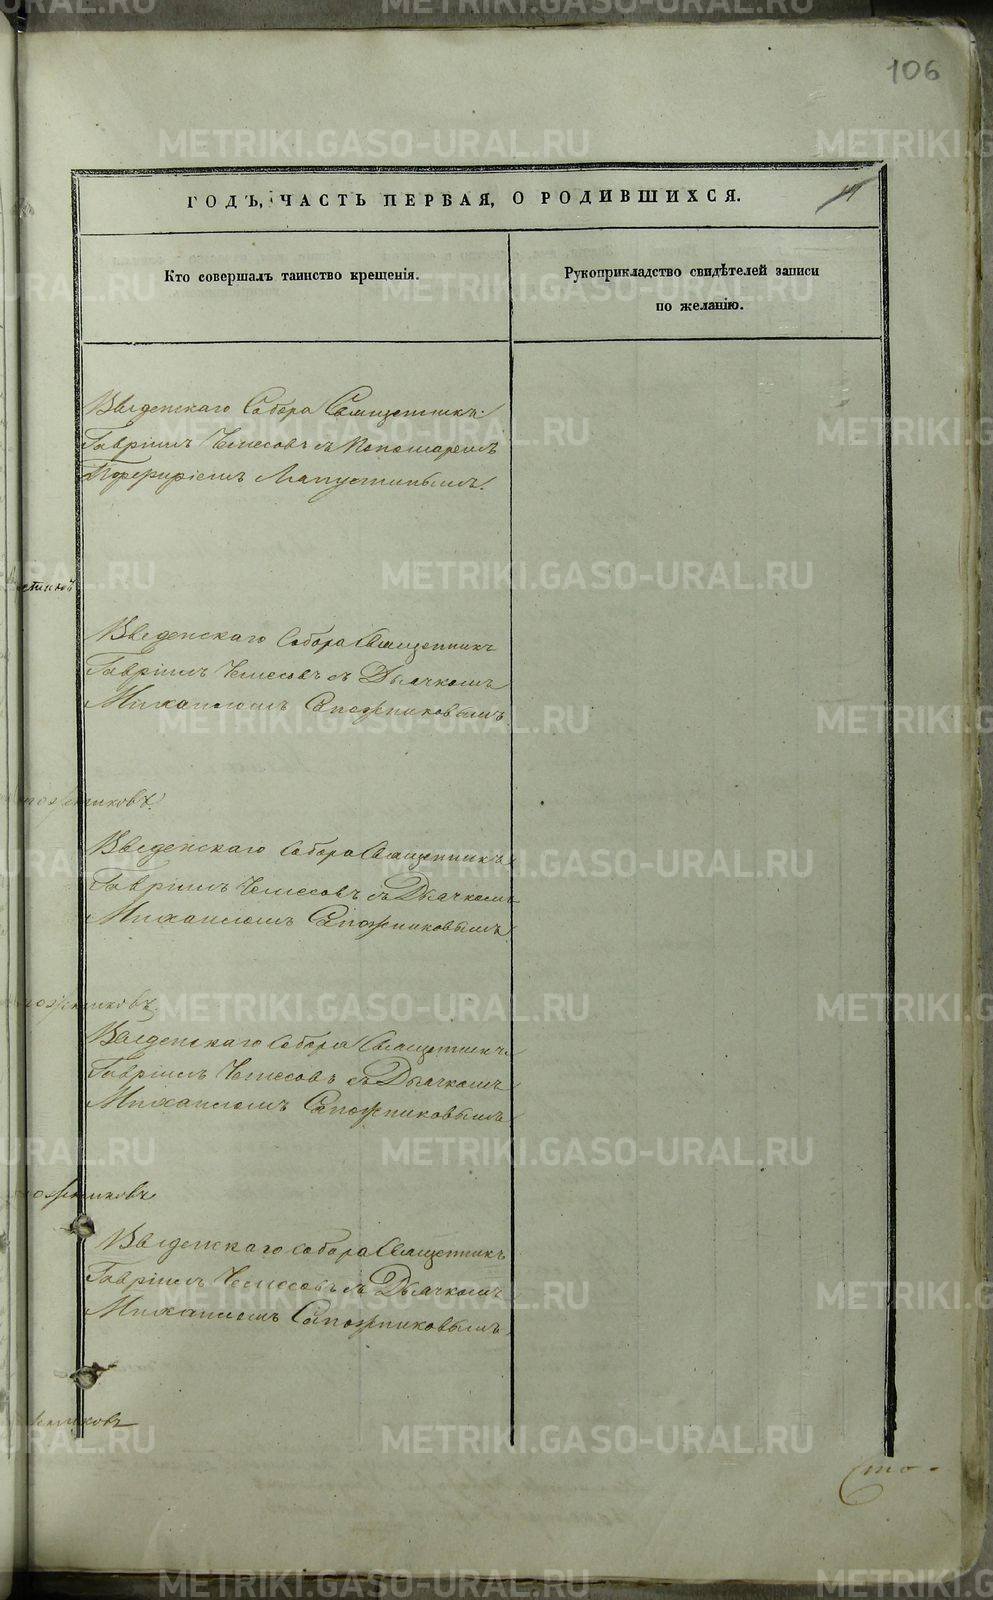 106
ГОДЪ, ЧАСТЬ ПЕРВАЯ, О РОДИВШИХСЯ.
Кто совершалъ таинство крещенія.
Рукоприкладство свидѣтелей записи
по желанію.
Введенскаго Собора Священникъ
Гавріилъ Чемесовъ съ Пономаремъ
Порфиріемъ Лапустинымъ.
Введенскаго Собора Священникъ
Гавріилъ Чемесовъ съ Дьячкомъ
Михаиломъ Сапожниковымъ
Введенскаго Собора Священникъ
Гавріилъ Чемесовъ съ Дьячкомъ
Михаиломъ Сапожниковымъ
Введенскаго Собора Священникъ
Гавріилъ Чемесовъ съ Дьячкомъ
Михаиломъ Сапожниковымъ
Введенскаго Собора Священникъ
Гавріилъ Чемесовъ съ Дьячкомъ
Михаиломъ Сапожниковымъ
Сто-
METRIKI.GASO-URAL.RU